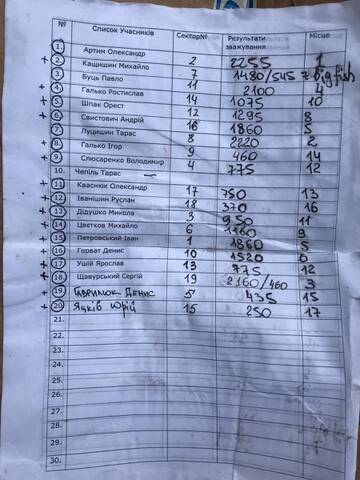 № Список Учасників Сектор№ Результати зважування Місце
1. Артим Олександр 2 2255 1
+ 2. Кащишин Михайло 7 1480/545 7 big fish
3. Буць Павло 11 2100 4
+ 4. Галько Ростислав 14 1075 10
+ 5. Шпак Орест 12 1295 8
+ 6. Свистович Андрій 16 1860 5
7. Луцишин Тарас 8 2220 2
+ 8. Галько Ігор 9 460 14
+ 9. Слюсаренко Володимир 4 775 12
10. Чепіль Тарас —
+ 11. Кваснюк Олександр 17 750 13
+ 12. Іванішин Руслан 18 370 16
+ 13. Дідушко Микола 3 950 11
+ 14. Цвєтков Михайло 6 1160 9
+ 15. Петровський Іван 1 1860 5
+ 16. Горват Денис 10 1520 6
+ 17. Ушій Ярослав 13 775 12
+ 18. Щавурський Сергій 19 2160/460 3
+ 19. Гаврилюк Денис 5 435 15
+ 20. Яцків Юрій 15 250 17
21.
22.
23.
24.
25.
26.
27.
28.
29.
30.